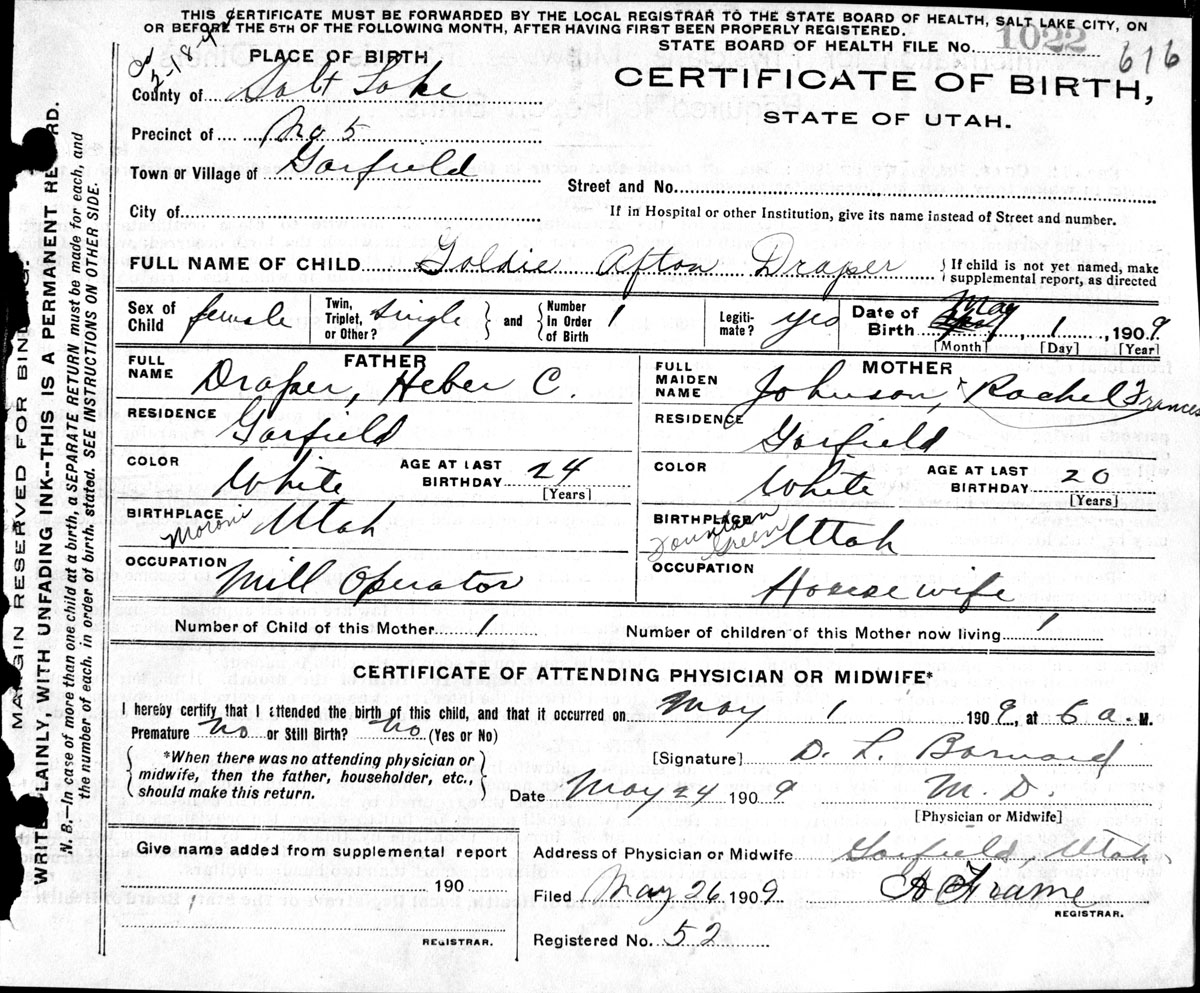 THIS CERTIFICATE MUST BE FORWARDED BY THE LOCAL REGISTRAR TO THE STATE BOARD OF HEALTH, SALT LAKE CITY, ON
OR BEFORE THE 5TH OF THE FOLLOWING MONTH, AFTER HAVING FIRST BEEN PROPERLY REGISTERED.
STATE BOARD OF HEALTH FILE No. 1022 616
PLACE OF BIRTH
CERTIFICATE OF BIRTH,
STATE OF UTAH.
County of Salt Lake
Precinct of No 5
Town or Village of Garfield
Street and No.
City of
If in Hospital or other Institution, give its name instead of Street and number.
FULL NAME OF CHILD Goldie Afton Draper } If child is not yet named, make supplemental report, as directed
Sex of Child female Twin, Triplet, or Other? Single } and { Number In Order of Birth 1 Legiti-mate? yes Date of Birth May 1, 1909
[Month] [Day] [Year]
FATHER
FULL NAME Draper, Heber C.
RESIDENCE Garfield
COLOR White AGE AT LAST BIRTHDAY 24
[Years]
BIRTHPLACE Moroni Utah
OCCUPATION Mill Operator
MOTHER
FULL MAIDEN NAME Johnson, Rachel Frances
RESIDENCE Garfield
COLOR White AGE AT LAST BIRTHDAY 20
[Years]
BIRTHPLACE Fountain Green Utah
OCCUPATION House wife
Number of Child of this Mother 1 Number of children of this Mother now living 1
CERTIFICATE OF ATTENDING PHYSICIAN OR MIDWIFE*
I hereby certify that I attended the birth of this child, and that it occurred on May 1 1909, at 6 a. M.
Premature No or Still Birth? No (Yes or No)
{ *When there was no attending physician or
midwife, then the father, householder, etc.,
should make this return. }
[Signature] D. L. Barnard
Date May 24 1909 M. D
[Physician or Midwife]
Give name added from supplemental report
190
REGISTRAR.
Address of Physician or Midwife Garfield, Utah
Filed May 26 1909 Frame
REGISTRAR.
Registered No. 52
MARGIN RESERVED FOR BINDING
WRITE PLAINLY, WITH UNFADING INK--THIS IS A PERMANENT RECORD.
N. B.--In case of more than one child at a birth, a SEPARATE RETURN must be made for each, and
the number of each, in order of birth stated. SEE INSTRUCTIONS ON OTHER SIDE.